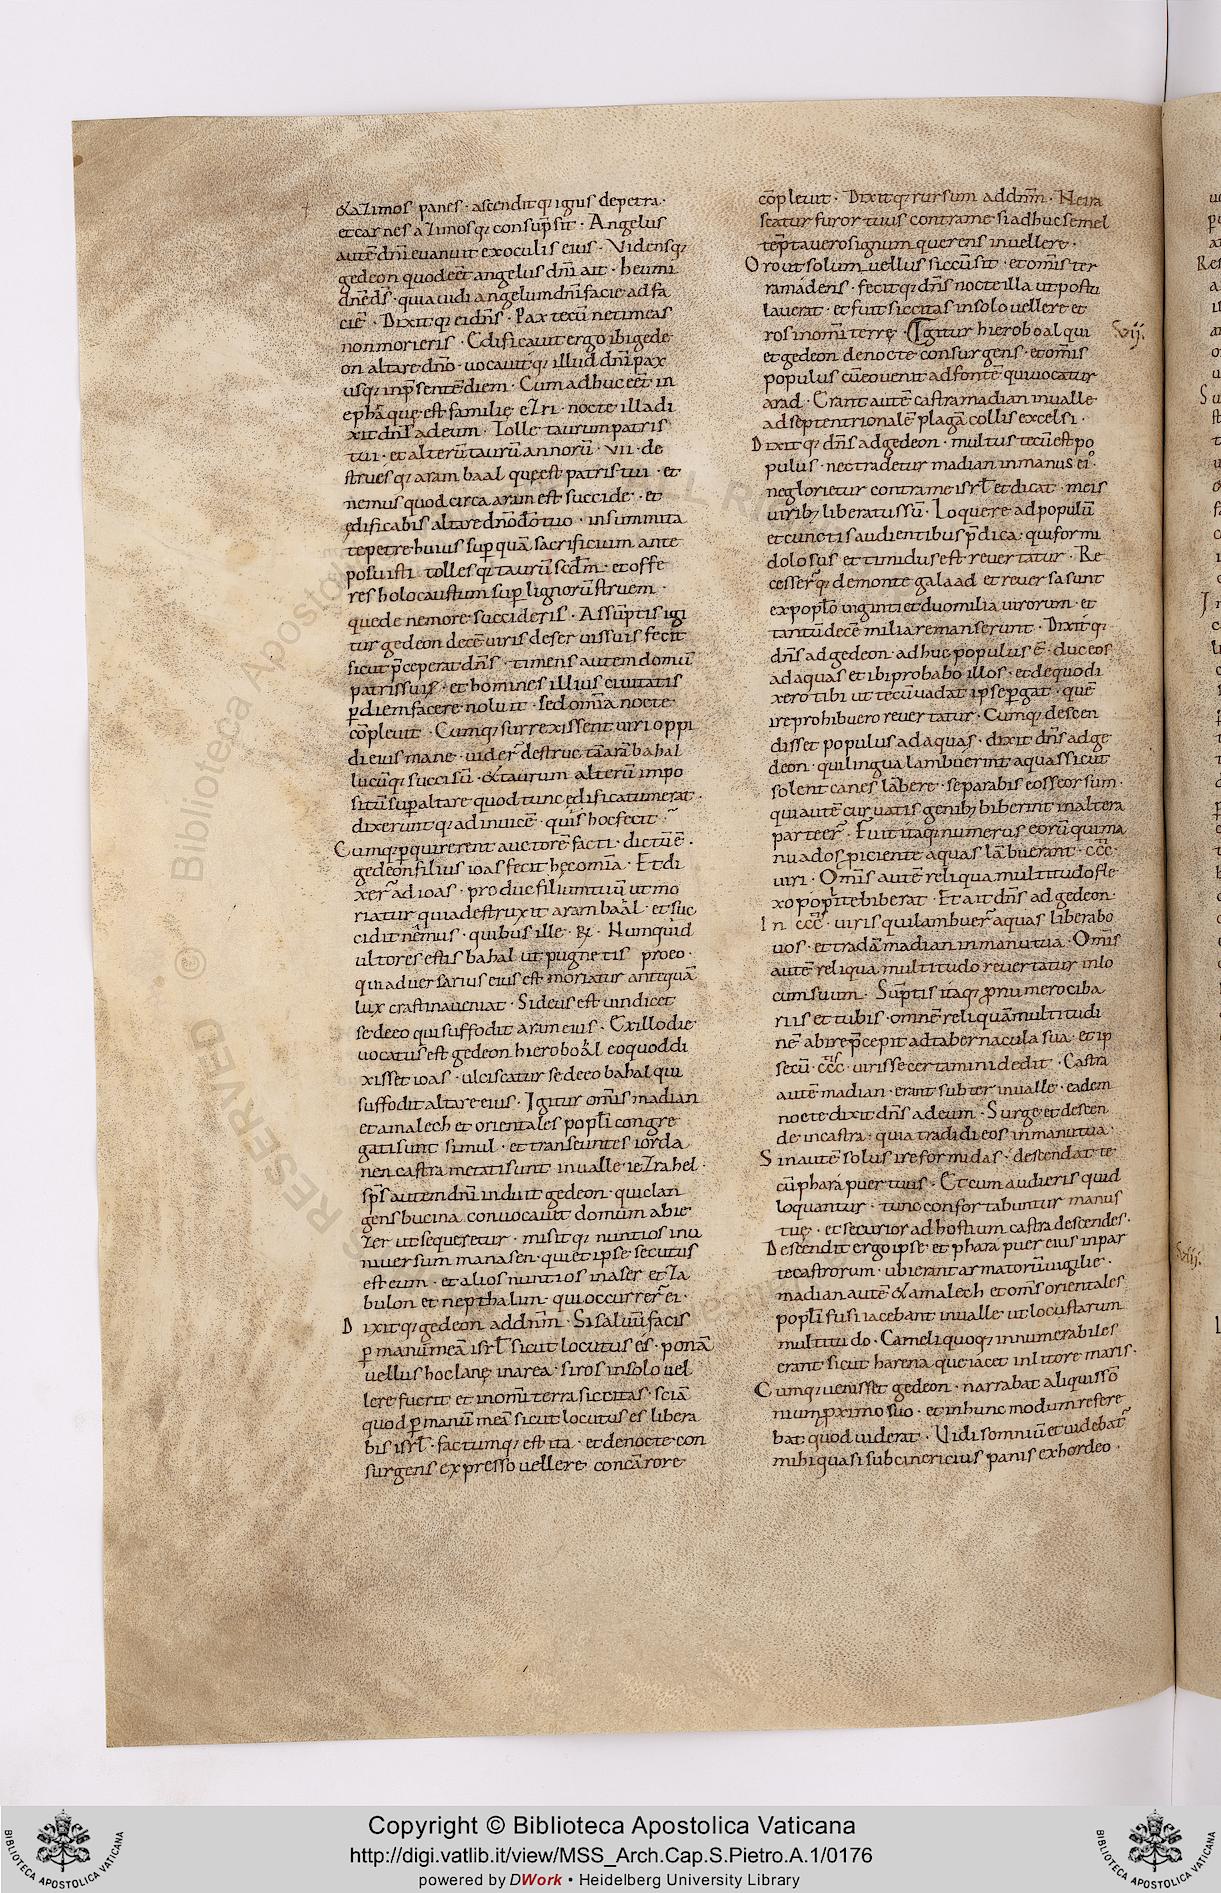 &azimos panes · ascenditq; ignis depetra ·
etcarnes azimosq; consupsit · Angelus
autē dn̄i euanuit exoculis eius · Vidensq;
gedeon quodeēt angelus dn̄i ait · heumi
dn̄ed̄s · quiauidi angelumdn̄i facie adfa
ciē · Dixitq; eidn̄s · Pax tecū netimeas
nonmorieris · Edificauit ergo ibigede
on altare dn̄o · uocauitq; illud dn̄i pax
usq; inp̄sentē diem · Cum adhuc eēt in
ephrāquę est familię ezri · nocte illa di
xit dn̄s adeum · Tolle taurum patris
tui · et alterū taurū annorū · vii · de
struesq; aram baal quęest patris tui · et
nemus quod circa aram est succide · et
ędificabis altare dn̄o dō tuo · insummita
te petre huius sup quā sacrificium ante
posuisti tollesq; taurū sed̄m · et offe
res holocaustum sup lignorū struem ·
quede nemore succideris · Assūptis igi
tur gedeon decē uiris deser uissuis fecit
sicut p̄ceperat dn̄s · timens autem domū
patrissui · et homines illius ciuitatis
p̱diem facere noluit · sed om̄ia nocte
cōpleuit · Cumq; surrexissent uiri oppi
di eius mane · uider̄ destructā arā bahal
lucūq; succisū · &taurum alterū impo
sitū sup altare quod tunc ędificatumerat ·
dixeruntq; adinuicē · quis hoc fecit ·
Cumq; p̱quirerent auctorē facti · dictū ē ·
gedeon filius ioas fecit hęcom̄ia · Et di
xer̄ ad ioas · produc filiumtuū ut mo
riatur quiadestruxit aram baal · et suc
cidit nēmus · quibus ille · R̄ · Numquid
ultores estis bahal ut pugnetis proeo ·
qui aduersarius eius est moriatur antequā
lux crastinaueniat · Sideus est uindicet
se deeo qui suffodit aram eius · Exillodie
uocatus est gedeon hieroboál eoquoddi
xisset ioas · ulciscatur se deeo bahal qui
suffodit altare eius · Igitur om̄is madian
et amalech et orientales popl̄i congre
gati sunt simul · et transeuntes iorda
nen castra metatisunt inualle iezrahel ·
sp̄s autem dn̄i induit gedeon · qui clan
gens bucina conuocauit domum abie
zer ut sequeretur · misitq; nuntios inu
niuersum manasen · qui et ipse secutus
est eum · et alios nuntios inaser et za
bulon et nepthalim · qui occurrer̄ ei ·
Dixitq; gedeon addn̄m · Si saluū facis
p̱ manū meā isrl̄ sicut locutus és · ponā
uellus hoc lanę inarea · si ros insolo uel
lere fuerit et inom̄i terra siccitas · sciā
quod p̱ manū meā sicut locutus es libera
bis isrl̄ · factumq; est ita · et denocte con
surgens expresso uellere concā rore
cōpleuit · Dixitq; rursum addn̄m · Neira
scatur furor tuus contrame siadhuc semel
tēptauero signum querens inuellere ·
Oro ut solum uellus siccū sit · et om̄is ter
ra madens · fecitq; dn̄s nocte illa ut postu
lauerat · et fuit siccitas insolo uellere et
ros inom̄i terrę · Igitur hieroboal qui
et gedeon denocte consurgens · et om̄is
populus cū eo uenit adfontē qui uocatur
arad · Erant autē castra madian inualle
ad septentrionalē plagā collis excelsi ·
Dixitq; dn̄s adgedeon · multus tecū est po
pulus · nec tradetur madian inmanus ei°
ne glorietur contrame isrl̄ et dicat · meis
uirib; liberatus sū · Loquere ad populū
et cunctis audientibus p̄dica · qui formi
dolosus et timidus est reuertatur · Re
cesser̄q; demonte galaad et reuersa sunt
ex popl̄o uiginti et duo milia uirorum · et
tantū decē milia remanserunt · Dixitq;
dn̄s adgedeon · adhuc populus ē · duc eos
ad aquas et ibi probabo illos · et dequo di
xero tibi ut tecū uadat ipse p̱gat · quē
ire prohibuero reuertatur · Cumq; descen
disset populus ad aquas · dixit dn̄s adge
deon · qui lingua lambuerint aquas sicut
solent canes lābere · separabis eos seorsum ·
qui autē curuatis genib; biberint inaltera
parte er̄ · Fuit itaq; numerus eorū qui ma
nu ad os piciente aquas lābuerant · ccc
uiri · Om̄is autē reliqua multitudo fle
xo poplite biberat · Et ait dn̄s ad gedeon ·
In ccc · uiris qui lambuer̄ aquas liberabo
uos · et tradā madian inmanu tua · Om̄is
autē reliqua multitudo reuertatur inlo
cum suum · Sūptis itaq; pro numero ciba
riis et tubis · omnē reliquā multitudi
nē abire p̄cepit ad tabernacula sua · et ip
se cū · ccc · uiris se certamini dedit · Castra
autē madian · erant subter inualle · eadem
nocte dixit dn̄s adeum · Surge et descen
de incastra · quia tradidi eos inmanu tua ·
Sin autē solus ire formidas · descendat te
cū phara puer tuus · Et cum audieris quid
loquantur · tunc confortabuntur manus
tuę · et securior ad hostium castra descendes ·
Descendit ergo ipse · et phara puer eius inpar
te castrorum · ubi erant armatorū uigilię ·
madian autē &amalech et om̄s orientales
popl̄i fusi iacebant inualle · ut locustarum
multitudo · Cameli quoq; innumerabiles
erant sicut harena que iacet inlitore maris ·
Cumq; uenisset gedeon · narrabat aliquis sō
nium proximo suo · et inhunc modum refere
bat quod uiderat · Vidi somniū et uidebat̄
mihi quasi subcinericius panis exhordeo ·
vij.
viij.
Copyright © Biblioteca Apostolica Vaticana
http://digi.vatlib.it/view/MSS_Arch.Cap.S.Pietro.A.1/0176
powered by DWork • Heidelberg University Library